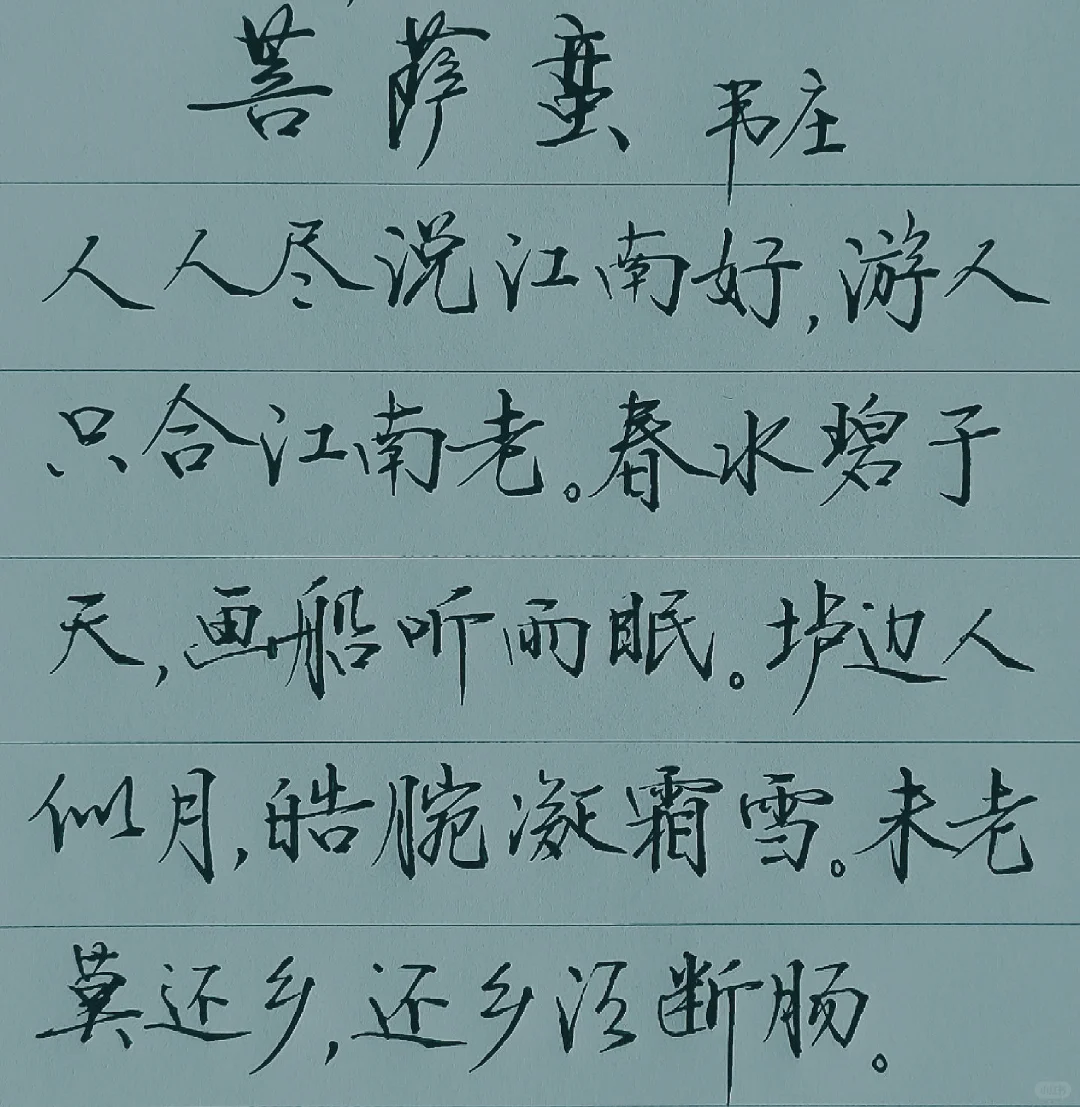 菩萨蛮 韦庄
人人尽说江南好,游人
只合江南老。春水碧于
天,画船听雨眠。垆边人
似月,皓腕凝霜雪。未老
莫还乡,还乡须断肠。